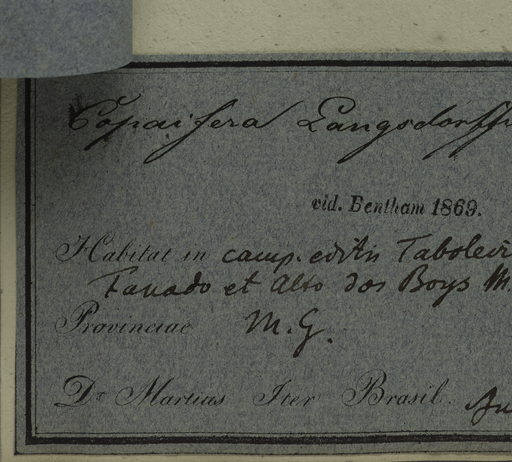 Copaifera Langsdorffi
vid. Bentham 1869.
Habitat in camp. editis Taboleir
Fanado et Alto dos Boys M.
Provinciae M. G.
Dr Martius Iter Brasil.